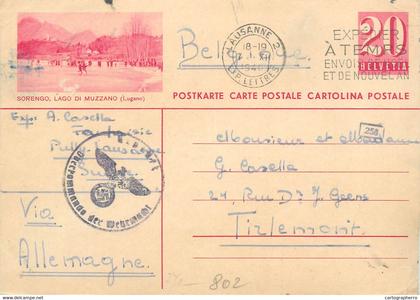 Belgique.
LAUSANNE 2
18-19
EXP. LETTRES
EXPEDIER
À TEMPS
ENVOIS
ET DE NOUVEL AN
20
HELVETIA
SORENGO, LAGO DI MUZZANO (Lugano)
POSTKARTE CARTE POSTALE CARTOLINA POSTALE
Exp: A. Casella
Pully-Lausanne
Suisse
Via
Allemagne
Oberkommando der Wehrmacht
258
Monsieur et Madame
G. Casella
24, Rue Dr J. Geens
Tirlemont.
802